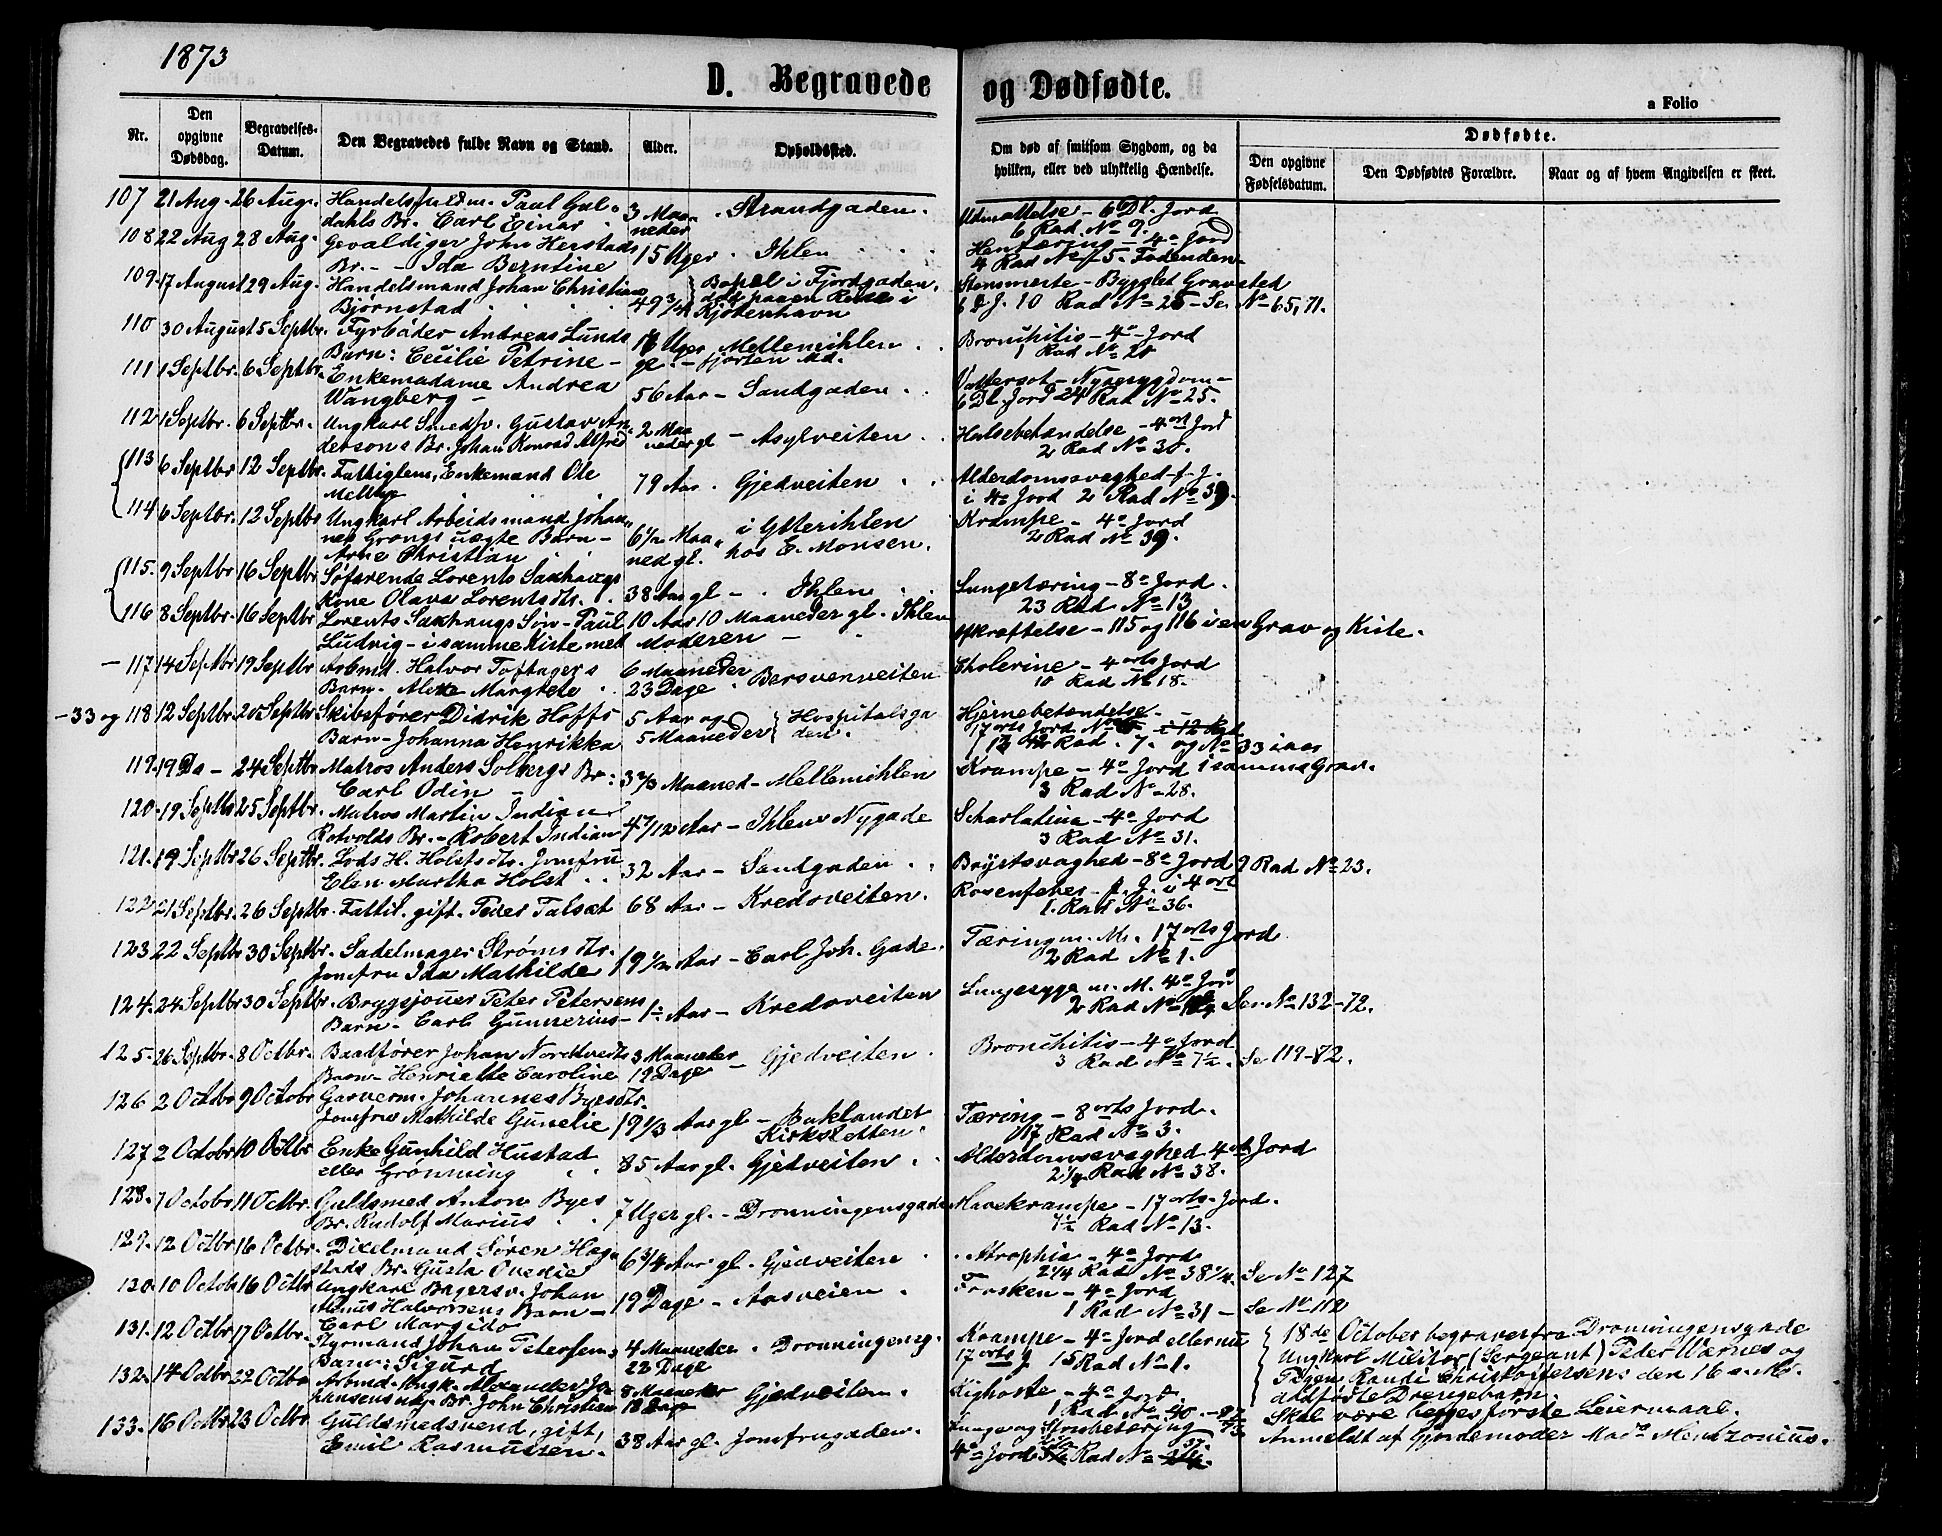 1873
D. Begravede og Dødfødte.
a Folio
Nr.
Den opgivne Dødsdag.
Begravelses-Datum.
Den Begravedes fulde Navn og Stand.
Alder.
Opholdssted.
Om død af smitsom Sygdom, og da hvilken, eller ved ulykkelig Hændelse.
Dødfødte.
Den opgivne Fødselsdatum.
Den Dødfødtes Forældre.
Naar og af hvem Angivelsen er skeet.
107 21 Aug. 26 Aug. Handelsfuldm. Paul Gul-
dahls Br. Carl Einar 3 Maa-
neder Strandgaden. Udmattelse - 6 Dl. Jord
6 Rad. No 9.
108 22 Aug 28 Aug. Gevaldiger John Herstads
Br. - Ida Berntine 15 Uger Ihlen
4 Rad No 5. Fodenden
109. 17 August 29 Aug. Handelsmand Johan Christian
Bjørnstad 49 3/4 Bopel i Fjordgaden,
død paa en Reise i
Kjøbenhavn Bygglet Gravsted
10 Rad No 25 - Se No 65, 71.
110 30 August 5 Septbr. Fyrbøder Andreas Lunds
Barn: Cecilie Petrine - 14 Uger
gl. - fjorten Mellemihlen Bronchitis - 4de Jord
1 Rad No 20
111 1 Septbr. 6 Septbr. Enkemadame Andrea
Wangberg - 56 Aar - Sandgaden. Vattersot - Nyresygdom -
6 Dl. Jord 24 Rad No 25.
112 1 Septbr. 6 Septbr. Ungkarl Smedsv. Gustav An-
dersons Br. Johan Konrad Alfred 2 Maa
neder gl - Asylveiten Halsebetændelse - 4de Jord
2 Rad No 38.
113 6 Septbr 12 Septbr. Fattiglem, Enkemand Ole
79 Aar. Gjedveiten Alderdomssvaghed - f. J.
i 4de Jord 2 Rad No 39.
114 6 Septbr. 12 Septbr Ungkarl Arbeidsmand Johan-
nes Grongs uægte Barn -
Arne Christian 6 1/2 Maa-
ned gl. i Ytterihlen
hos E. Monsen. Krampe - 4de Jord
2 Rad No 39.
115. 9 Septbr 16 Septbr Søfarende Lorents Saxhaugs
Kone Olava Lorentsdtr. 38 Aar gl - Ihlen Lungetæring - 8de Jord.
23 Rad No 13
116 8 Septbr. 16 Septbr Lorents Saxhaugs Søn - Paul
Ludvig - i samme Kiste med Moderen - 10 Aar 10 Maaneder gl. Ihlen Afkræftelse - 115 og 116 i en Grav og Kiste.
- 117 14 Septbr 19 Septbr Arbmd. Halvor Toftagers
Barn - Margrete 6 Maaneder
23 Dage Bersvenveiten Cholerine - 4de Jord
10 Rad No 18.
- 33 og 118 12 Septbr. 20 Septbr Skibsfører Didrik Hoffs
Barn - Johanna Henrikka 5 Aar og
5 Maaneder Hospitalsga
den. Hjernebetændelse -
17 Jord
Rad. 7. og No 33 iaar
119. 19 Do - 24 Septbr Matros Anders Solbergs Br:
Carl Odin 3 2/3 Maaned - Mellemihlen Krampe - 4de Jord i samme Grav.
3 Rad No 28.
120. 19 Septbr 25 Septbr. Matros Martin Indian
Rotvolds Br. - Robert Indian 4 7/12 Aar - Ihlens Nygade Scharlatina - 4de Jord
3 Rad No 31.
121. 19 Septbr 26 Septbr. Lods H. Holsts dtr. Jomfru
Elen Martha Holst 32 Aar - Sandgaden Brystsvaghed - 8de Jord 9 Rad No 23.
122 21 Septbr. 26 Septbr. Fattil. gift. Peder Talset 68 Aar - Kredoveiten. Rosenfeber - f. J. i 4
1. Rad No 36.
123 22 Septbr 30 Septbr. Sadelmager Strøms dtr.
Jomfru Ida Mathilde 19 1/2 Aar - Carl Joh. Gade. Tæring m. M. 17 Jord
2 Rad No 1.
124. 24 Septbr 30 Septbr. Brygsjouer Peter Petersens
Barn - Carl Gunnerius - 1 Aar - Kredoveiten Lungesyge m. M. 4de Jord
2 Rad No Se No 132 - 72.
125. 26 Septbr. 8 Octbr. Baadfører Johan Nordtvedts
Barn - Henriette Caroline 3 Maaneder
19 Dage - Gjedveiten. Bronchitis - 4de Jord
3 Rad No 7 1/2. Se 119 - 72.
126 2 Octbr 9 Octobr Gasverm. Johannes Byes dtr.
Jomfru Mathilde Gunelie 19 1/3 Aar gl - Baklandet
Kirksletten. Tæring - 8 Jord.
17 Rad No 3.
127 2 Octobr 10 Octbr Enke Gunhild Hustad
eller Grønning 85 Aar gl. Gjedveiten Alderdomssvaghed 4 Jord
2 1/4 Rad No 38.
128. 7 Octobr 11 Octbr Guldsmed Anton Byes
Br. Rudolf Marius 7 Uger gl. - Dronningensgade Mavekrampe - 17 Jord.
7 1/2 Rad No 13.
129. 12 Octbr 16 Octbr. Dixelmand Søren Hag-
stads Br. Gusta Ovedie 6 3/4 Aar gl. Gjedveiten Atrophia - 4de Jord
2 1/4 Rad No 38 Se No 127
130 10 Octobr 16 Octbr Ungkarl Bagersv. Johan
Halvorsens Barn -
Carl Margido 19 Dage - Aasveien Trosken - 4de Jord
1 Rad No 31 - Se No 112
131. 12 Octbr 17 Octbr. Johan Petersens
Barn: Sigurd 4 Maaneder
22 Dage Dronningensg. Krampe - 4de Jord
15 Rad No 1.
18de October begraves fra Dronningensgade
Ungkarl Militær (Sergeant) Peder Værnes og
Pigen Randi Christoffersen: den 16 a. M.
dødfødte Drengebarn.
Skal være begges første Leiermaal.
Anmeldt af Gjordemoder Mad.
132. 14 Octbr 22 Octbr Arbmd. Ungk. Alexander Jo-
hansens Br. John Christian 8 Maaneder
18 Dage Gjedveiten. Kighoste - 4de Jord
1 Rad No 40.
133. 16 Octbr 23 Octbr. Guldsmedsvend, gift,
Emil Rasmussen. 38 Aar gl. Jomfrugaden. Lunge og Strubetæring
4de Jord Rad No